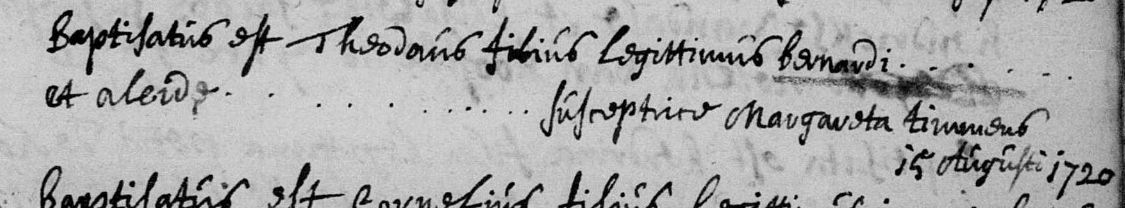 Baptisatus est Theodorus filius legittimus bernardi . . . . . .
et aleidæ . . . . . . . . . . . . susceptrice Margareta timmens
15 Augusti 1720
Baptisatus est Cornelius filius legitti